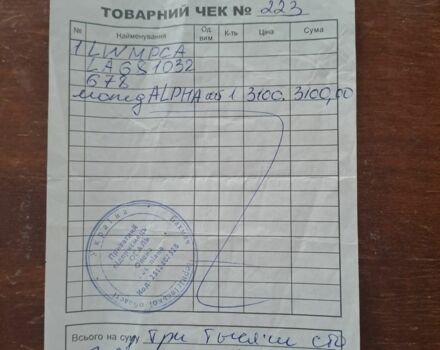 ТОВАРНИЙ ЧЕК № 223
№ Найменування Од. вим. К-ть Ціна Сума
1 LWMPCA
LAGS1032
678
мопед ALPHA шт 1 3100, 3100,00
Україна
Приватний
підприємець
Код
Всього на суму три тысячи сто